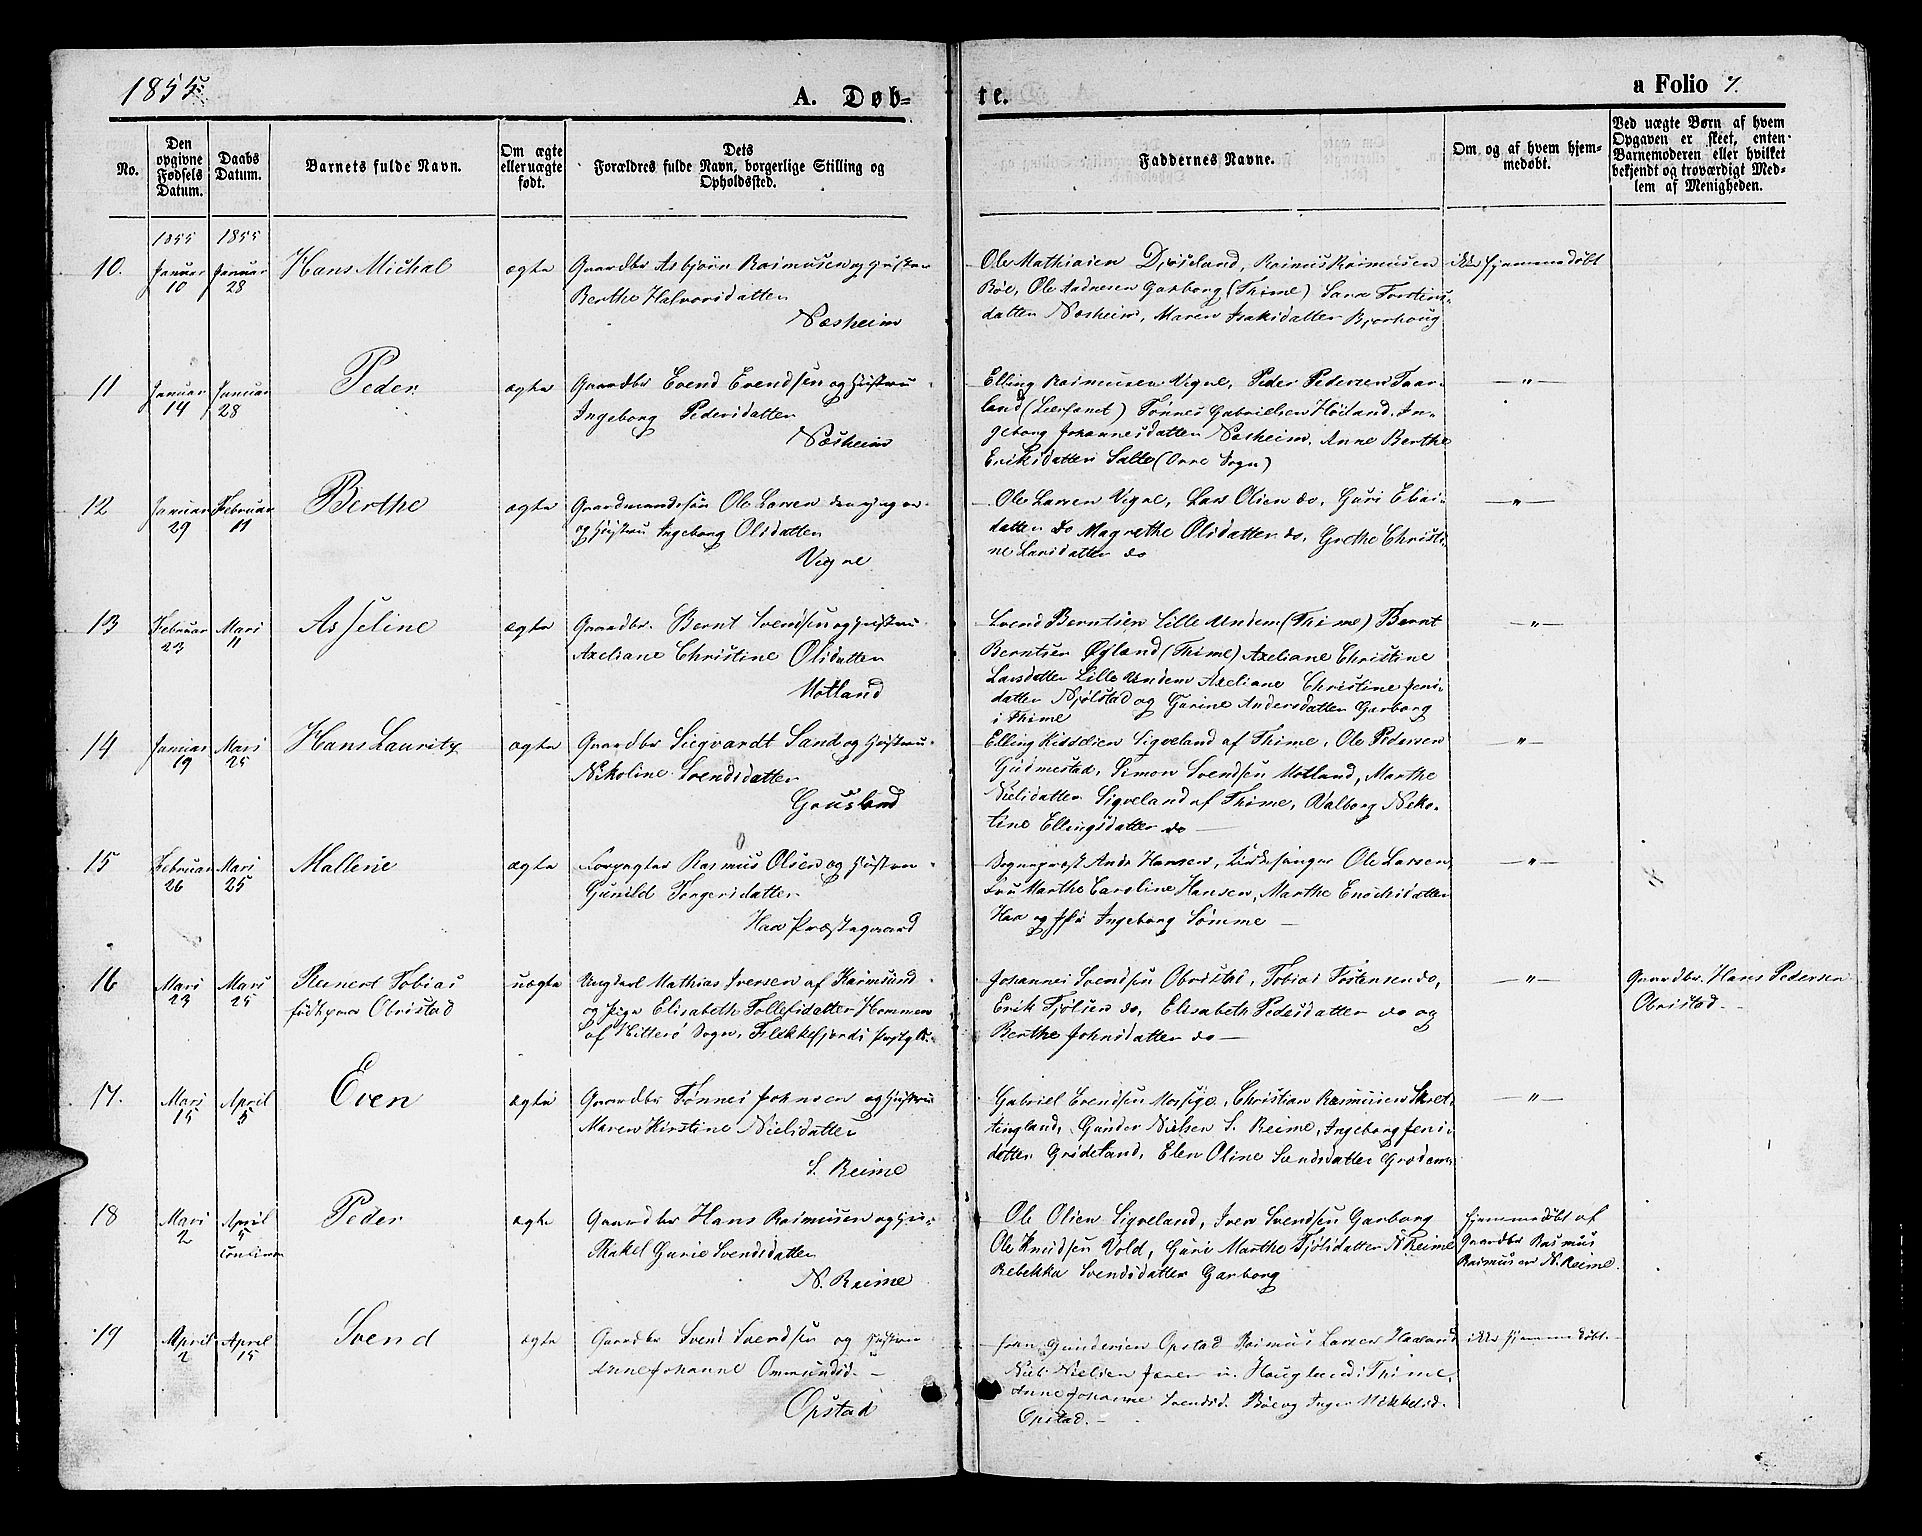 1855.
A. Døb-
te.
a Folio 7.
No.
Den opgivne Fødsels Datum.
Daabs Datum.
Barnets fulde Navn.
Om ægte eller uægte født.
Dets
Forældres fulde Navn, borgerlige Stilling og
Opholdssted.
Faddernes Navne.
Om og af hvem hjem-
medøbt.
Ved uægte Børn af hvem
Opgaven er skeet, enten
Barnemoderen eller hvilket
bekjendt og troværdigt Med-
lem af Menigheden.
1855 1855
10. Januar 10 Januar 28 Hans Michal ægte Gaardbr Asbjørn Rasmusen og Hustru
Berthe Halvorsdatter
Næsheim
Ole Mathiasen Djøseland, Rasmus Rasmusen
Bøe, Ole Aadnesen Garborg (Thime) Sara Torstens-
datter Næsheim, Maren Isaksdatter Bjorhoug
ikke hjemmedøbt
11 Januar 14 Januar 28 Peder ægte Gaardbr Evend Evendsen og Hustru
Ingeborg Pedersdatter
Næsheim
Elling Rasmusen Vigne, Peder Pedersen Taar-
land (Lærfanet) Tønnes Gabrielsen Høiland. In-
geborg Johannesdatter Næsheim, Anne Berthe
Eriksdatter Salte (Orre Sogn)
— „ —
12 Januar 29 Februar 11 Berthe ægte Gaardmandssøn Ole Larsen den yngre
og Hustru Ingeborg Olsdatter
Vigne
Ole Larsen Vigne, Lars Olsen do, Guri Elias-
datter do Magrethe Olsdatter do, Grethe Christi-
ne Larsdatter do
„ —
13 Februar 23 Mars 11 Asseline ægte Gaardbr. Bernt Svendsen og Hustru
Axeliane Christine Olsdatter
Motland
Svend Berntsen Lille Undem (Thime) Bernt
Berntsen Øyland (Thime) Axeliane Christine
Larsdatter Lille Undem Axeliane Christine Jens-
datter Njølstad og Gurine Andersdatter Garborg
i Thime
— „ —
14 Januar 19 Mars 25 Hans Lauritz ægte Gaardbr Siegvardt Sand og Hustru
Nikoline Svendsdatter
Grusland
Elling Kidsdsen Sigveland af Thime, Ole Pedersen
Gudmestad, Simon Svendsen Motland, Marthe
Nielsdatter Sigveland af Thime, Valborg Niko-
line Ellingsdatter do —
— „ —
15 Februar 26 Mars 25 Mallene ægte Forpagter Rasmus Olsen og Hustru
Gunild Torgersdatter
Haa Præstegaard
Sogneprest Ands Hansen, Kirkesanger Ole Larsen,
Fru Marthe Caroline Hansen, Marthe Enochsdatter
Haa og Jfr Ingeborg Sømme —
— „ —
16 Mars 23 Mars 25 Reinert Tobias
født paa Obristad
uægte Ungkarl Mathias Iversen af Karmsund
og Pige Elisabeth Tollefsdatter Hommen
af Hitterø Sogn, Flekkefjords Prstgld.
Johannes Svendsen Obristad, Tobias Tostensen do,
Erik Tjølsen do, Elisabeth Pedersdatter do og
Berthe Johnsdatter do —
— „ —
Gaardbr. Hans Pedersen
Obristad. —
17. Mars 15 April 5 Even ægte Gaardbr Tønnes Johnsen og Hustru
Maren Kirstine Nielsdatter
S. Reime
Gabriel Evendsen Mossige, Christian Rasmusen Skret-
tingland, Gunder Nielsen S. Reime, Ingeborg Jens-
datter Grødeland, Elen Oline Svendsdatter Grødem
— „ —
18 Mars 2 April 5 Peder ægte Gaardbr Hans Rasmusen og Hu-
Rakel Gurie Svendsdatter
N. Reime
Ole Olsen Sigveland, Iver Svendsen Garborg
Ole Knudsen Vold, Guri Marthe Tjølsdatter N Reime
Rebekka Svendsdatter Garborg
hjemmedøbt af
Gaardbr Rasmus
Rasmusen N. Reime.
19 April 2 April 15 Svend ægte Gaardbr Svend Svendsen og Hustru
Anne Johanne Ommundsd. —
Opstad
Gundersen Opstad Rasmus Larsen Haaland
Niels Nielsen Haugland i Thime,
Anne Johanne Svendsd. Bøe og Inger Mikkelsd.
Opstad. —
ikke hjemmedøbt. —